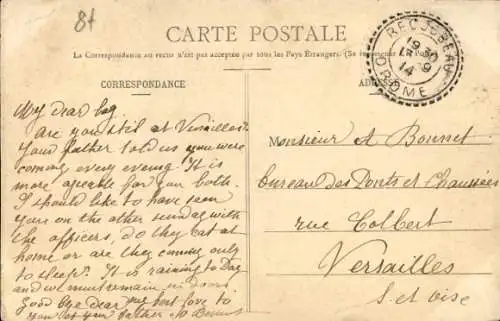 87
CARTE POSTALE
La Correspondance au recto n'est pas acceptée par tous les Pays Étrangers. (Se renseigner à la Poste)
CORRESPONDANCE
RECOUBEAU
19 30
9
14
DROME
My dear
are you still at Versailles?
Your father told us you were
coming every evening. It is
more agreable for you both.
I should like to have seen
you on the other sunday with
the officers, do they eat at
home or are they coming only
to sleep? It is raining to Day
and we must remain in doors.
Good bye dear my best love to
you and your father
Monsieur A Bonnet
bureau des Ponts et Chaussées
rue Colbert
Versailles
S. et Oise